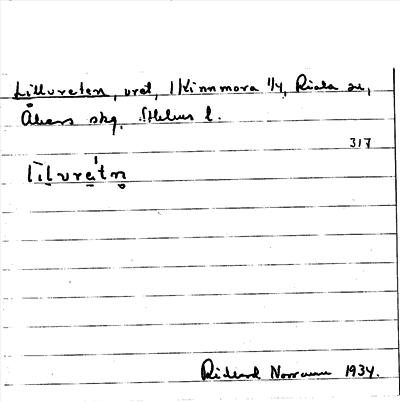 Lillvreten, vret, 1 Kinnmora 1/4, Riala sn,
Åkers skg, Sthlms l.
317
lìlvre̠tn̥
Rickard Norrman 1934.